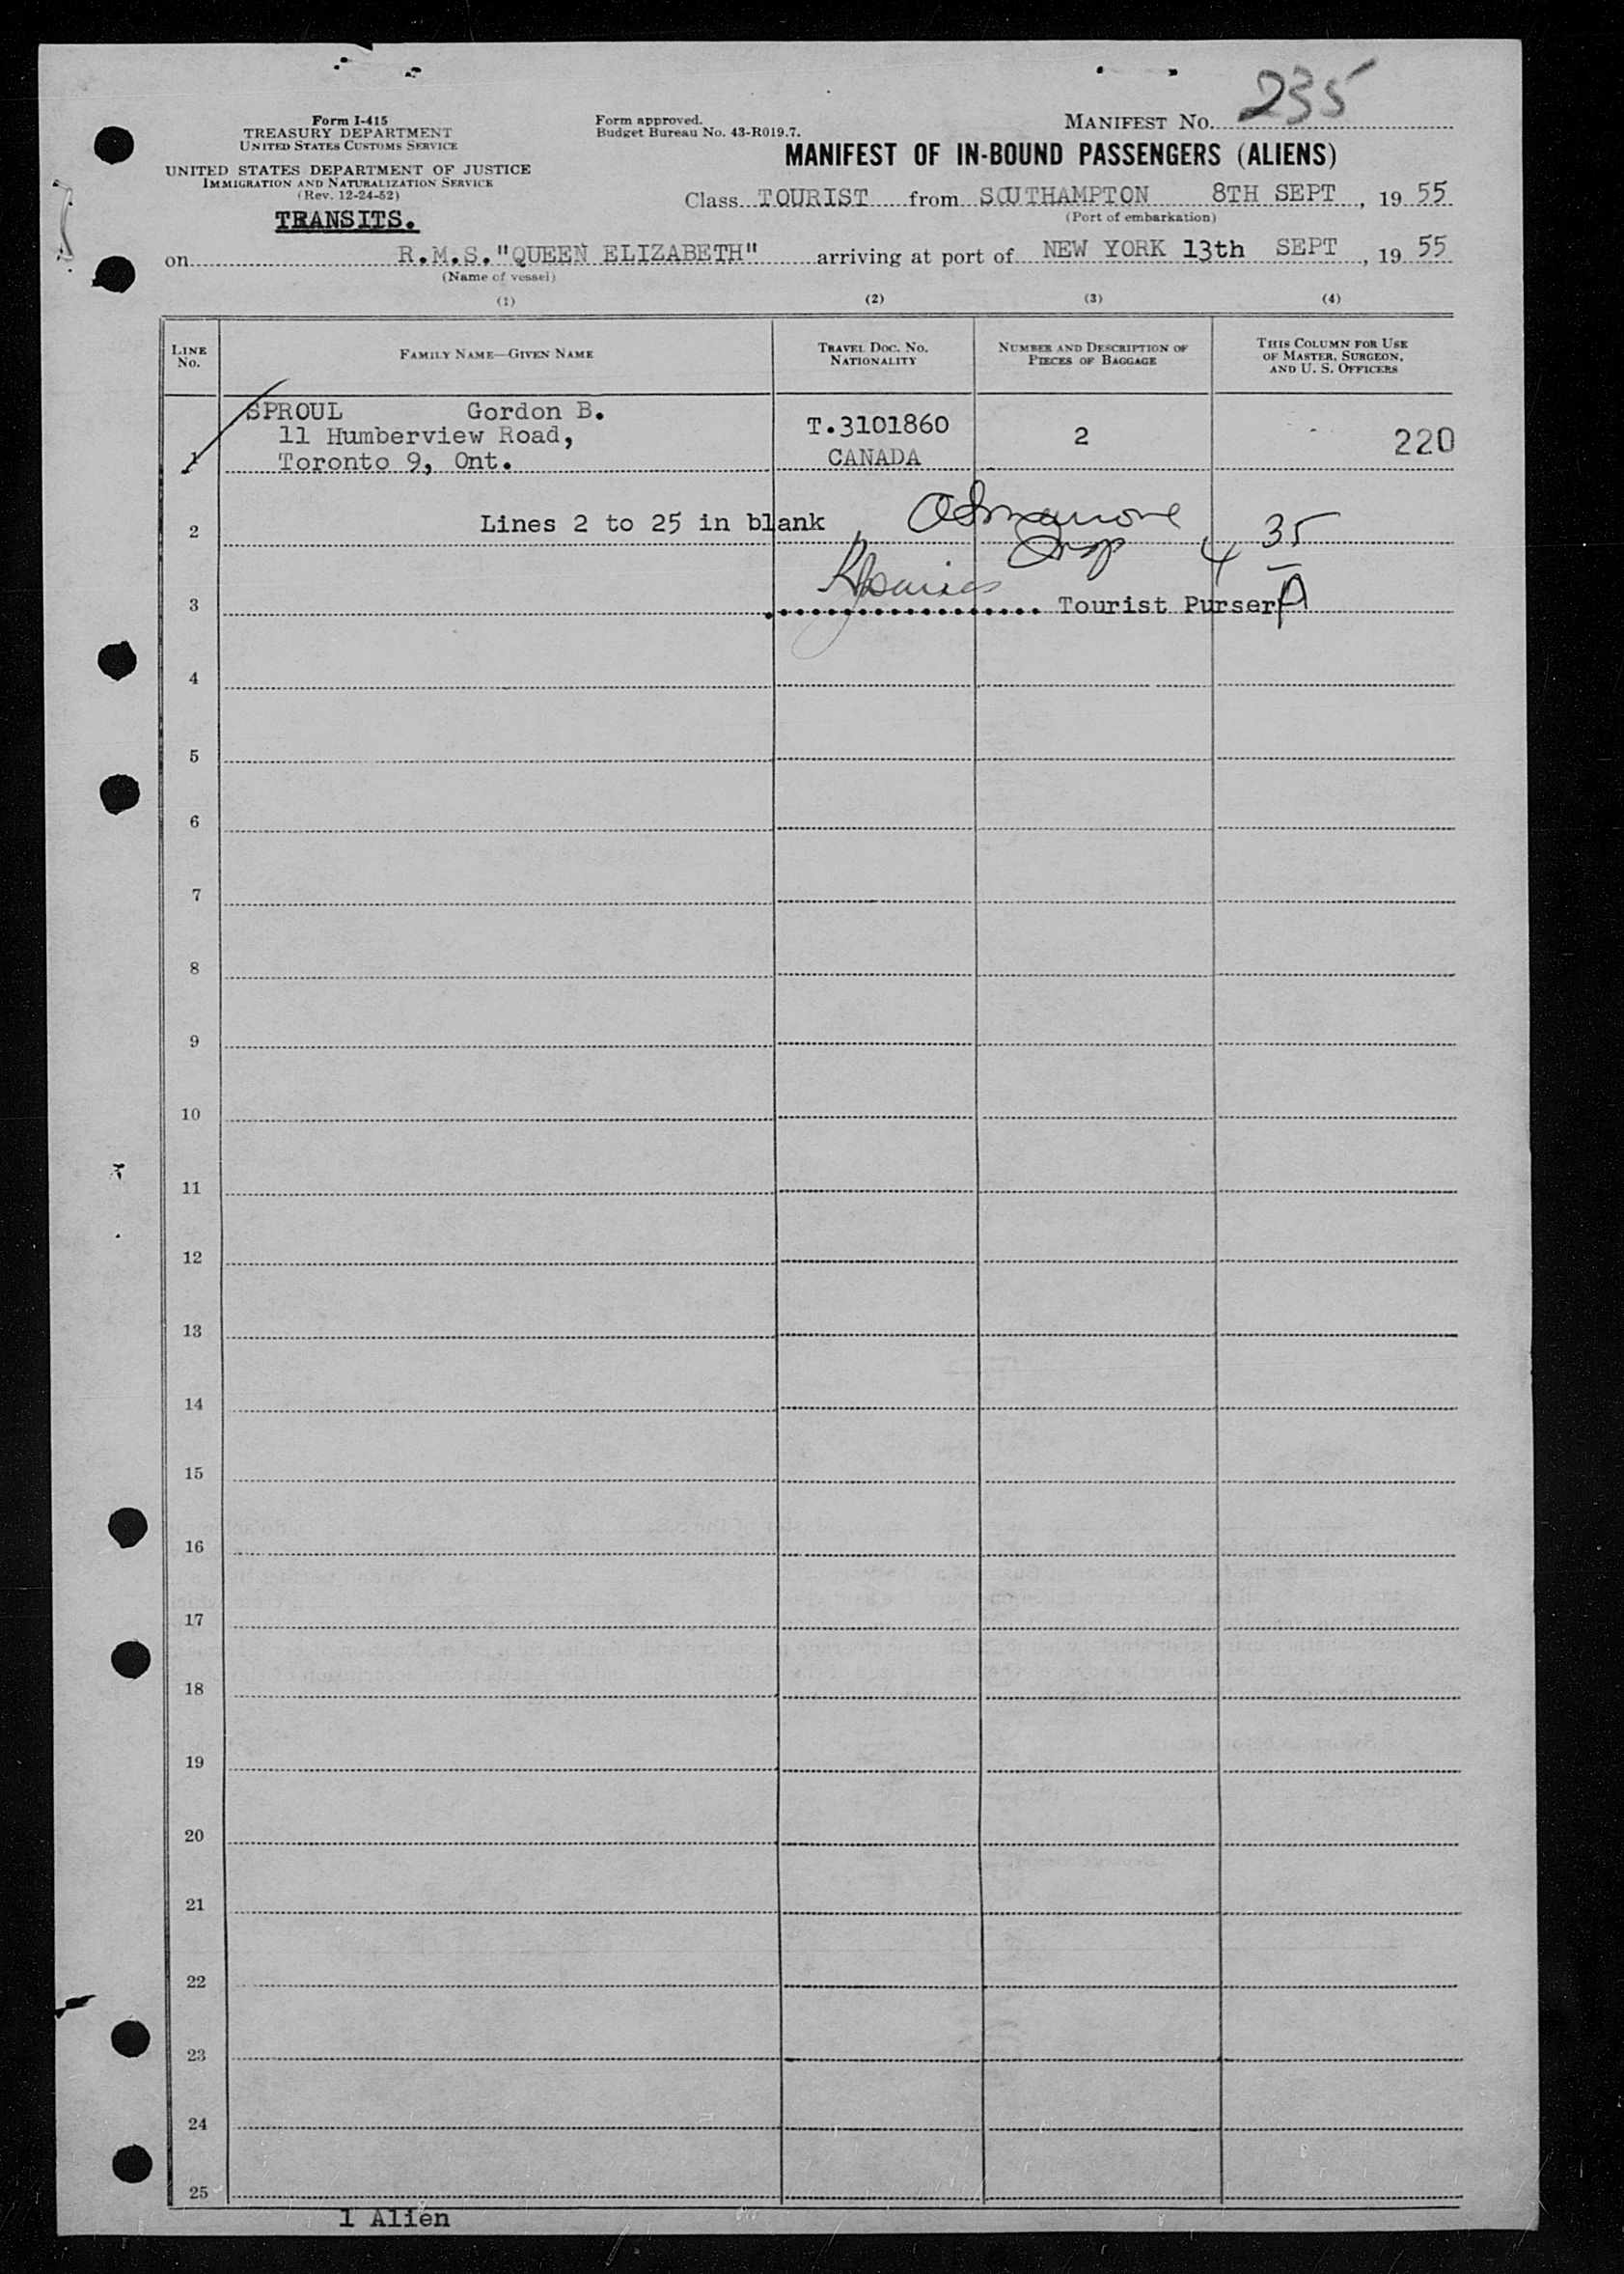 Form I-415
TREASURY DEPARTMENT
UNITED STATES CUSTOMS SERVICE
UNITED STATES DEPARTMENT OF JUSTICE
IMMIGRATION AND NATURALIZATION SERVICE
(Rev. 12-24-52)
TRANSITS.
Form approved.
Budget Bureau No. 43-R019.7.
MANIFEST No. 235
MANIFEST OF IN-BOUND PASSENGERS (ALIENS)
Class TOURIST from SOUTHAMPTON 8TH SEPT, 19 55
(Port of embarkation)
on R.M.S."QUEEN ELIZABETH" arriving at port of NEW YORK 13th SEPT, 19 55
(Name of vessel)
(1) (2) (3) (4)
LINE No. FAMILY NAME—GIVEN NAME TRAVEL DOC. NO. NATIONALITY NUMBER AND DESCRIPTION OF PIECES OF BAGGAGE THIS COLUMN FOR USE OF MASTER, SURGEON, AND U. S. OFFICERS
SPROUL Gordon B. T.3101860
11 Humberview Road, 2 220
1 Toronto 9, Ont. CANADA
2 Lines 2 to 25 in blank 4 35
3 Tourist Purser A
4
5
6
7
8
9
10
11
12
13
14
15
16
17
18
19
20
21
22
23
24
25
1 Alien